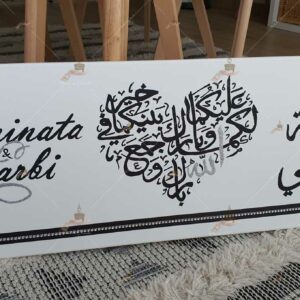 inata
&
arbi
بارك الله لكما وبارك عليكما وجمع بينكما في خير